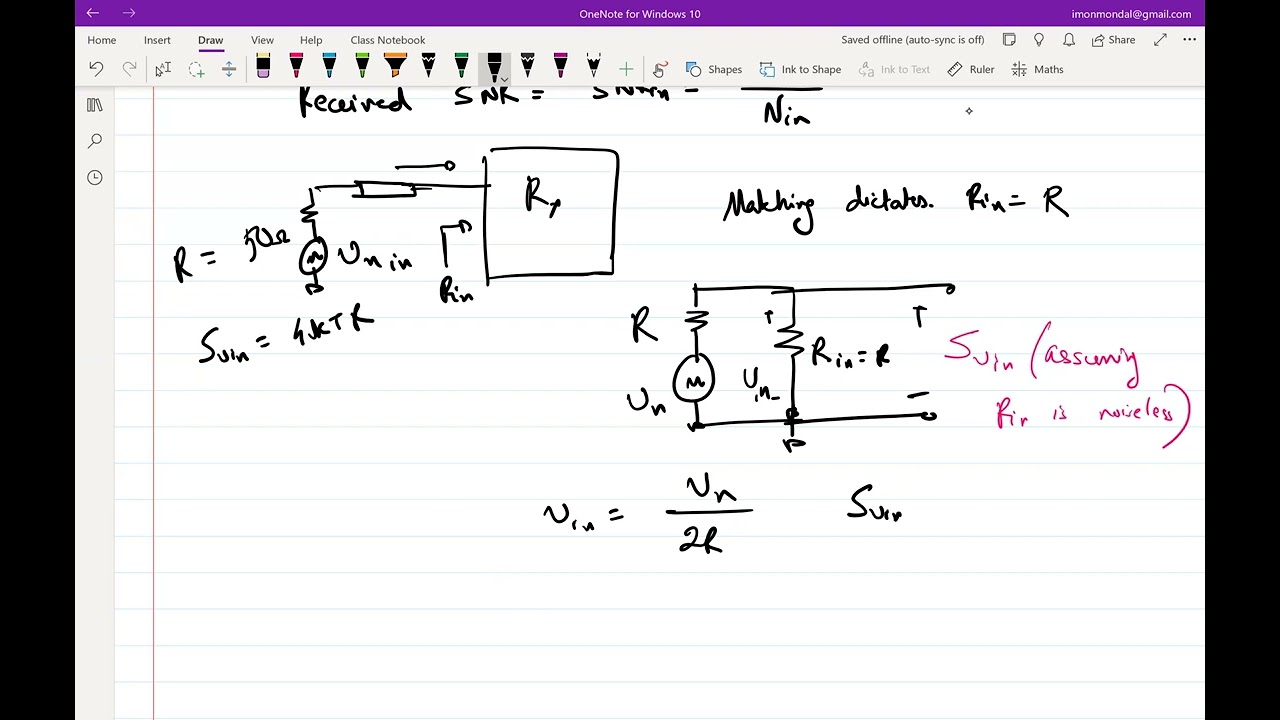 OneNote for Windows 10
imonmondal@gmail.com
Home Insert Draw View Help Class Notebook
Saved offline (auto-sync is off) Share
Shapes Ink to Shape Ink to Text Ruler Maths
Received SNR = SNRin =
Nin
Rx
Matching dictates. Rin = R
R = 50Ω
vn in
Rin
Svin = 4kTR
R
Rin = R
vn
vin
+
-
Svin (assuming
Rin is noiseless)
vin = vn / 2R
Svin